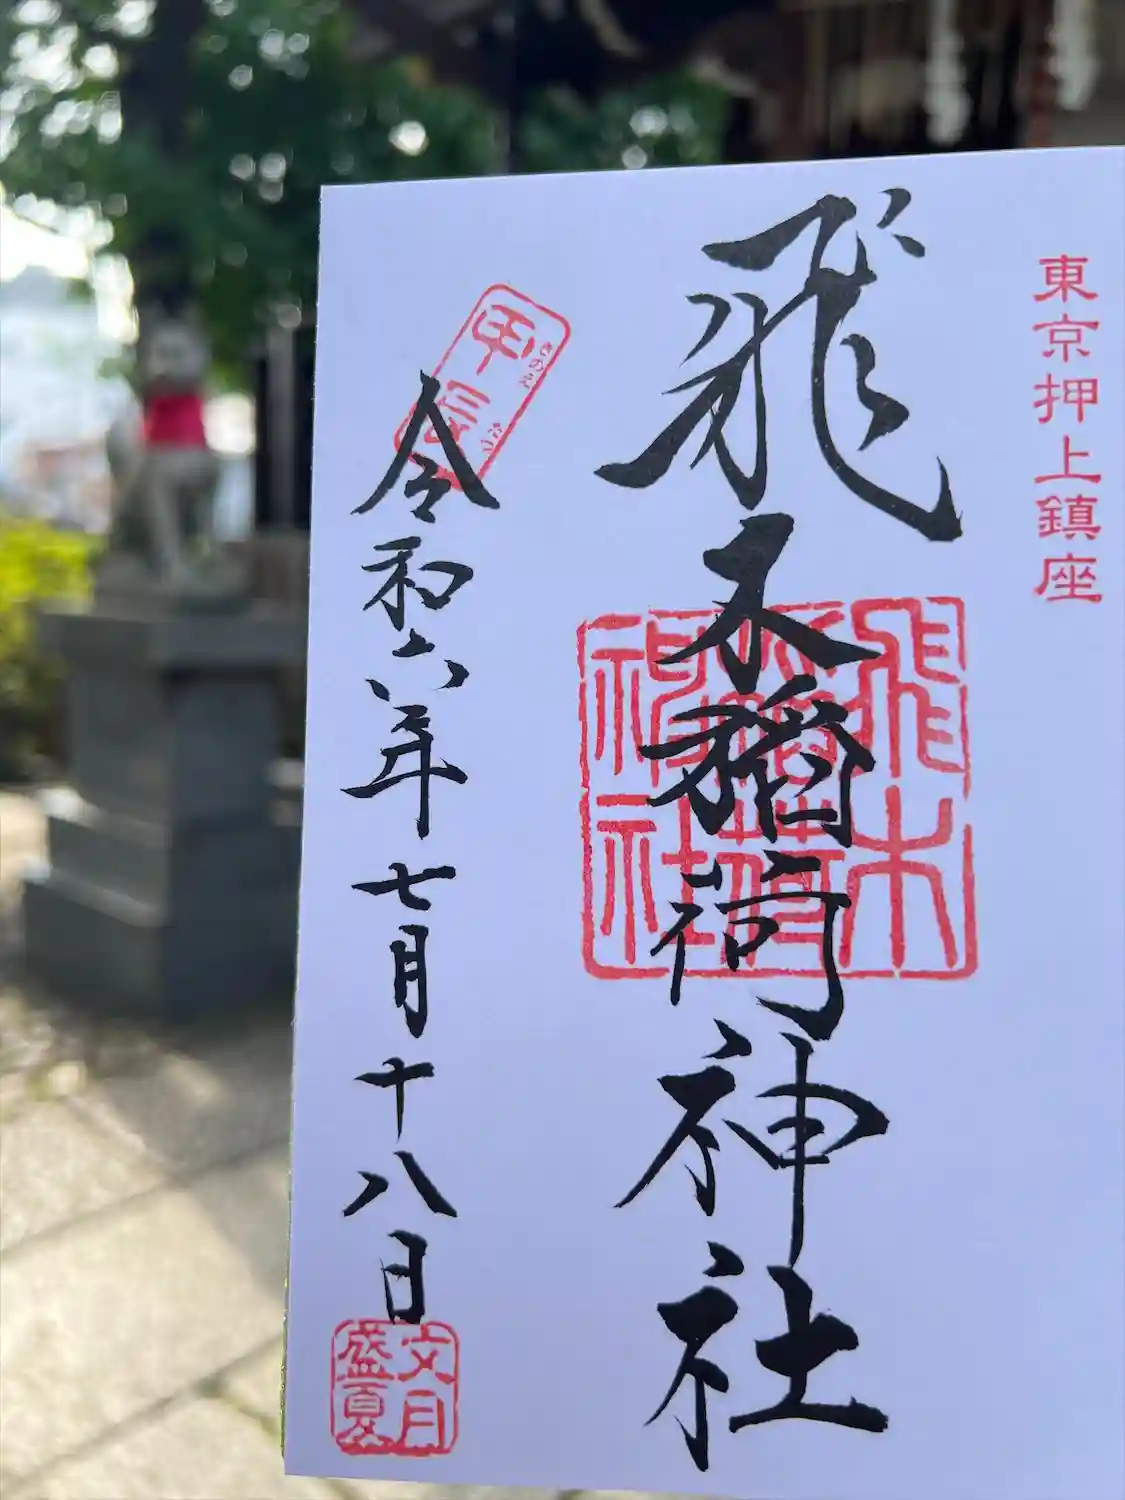 東京押上鎮座
飛木稲荷神社
飛木
稲荷
神社
甲子
きのえ
令和六年七月十八日
文月
盛夏